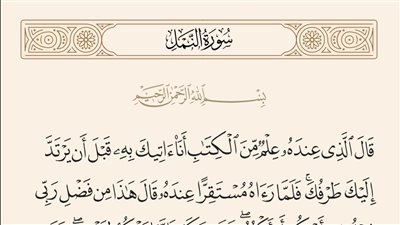 سُورَةُ النَّمْلِ
بِسْمِ اللَّهِ الرَّحْمَٰنِ الرَّحِيمِ
قَالَ ٱلَّذِى عِندَهُۥ عِلْمٌ مِّنَ ٱلْكِتَٰبِ أَنَا۠ ءَاتِيكَ بِهِۦ قَبْلَ أَن يَرْتَدَّ
إِلَيْكَ طَرْفُكَ ۚ فَلَمَّا رَءَاهُ مُسْتَقِرًّا عِندَهُۥ قَالَ هَٰذَا مِن فَضْلِ رَبِّى